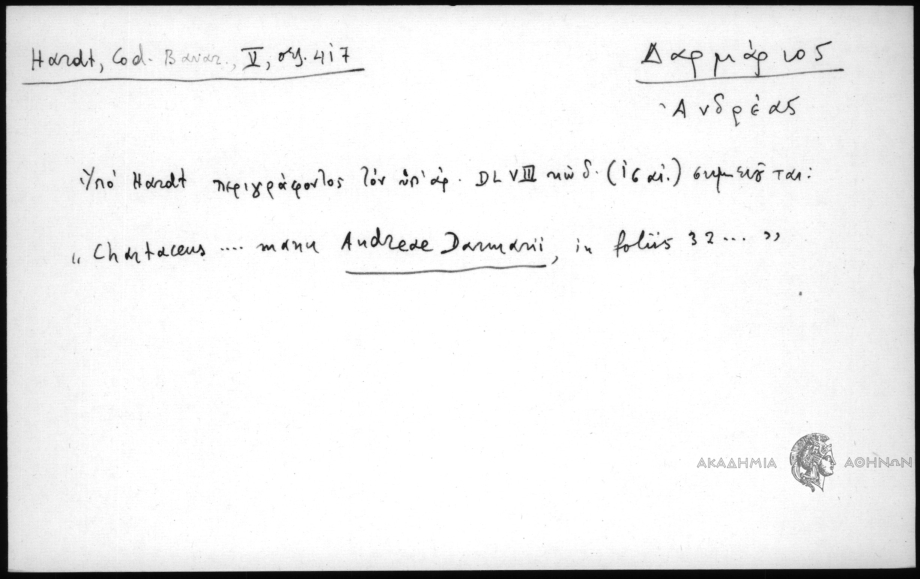 Hardt, Cod. Bavar., V, σς. 417
Δαρμάριος
Ἀνδρέας
Ὑπό Hardt περιγράφοντος τόν ὑπ' ἀρ. DLVIII κώδ. (ις αἰ.) σημειοῦται:
„ Chartaceus .... manu Andreae Darmarii, in foliis 32 ... "
ΑΚΑΔΗΜΙΑ ΑΘΗΝΩΝ